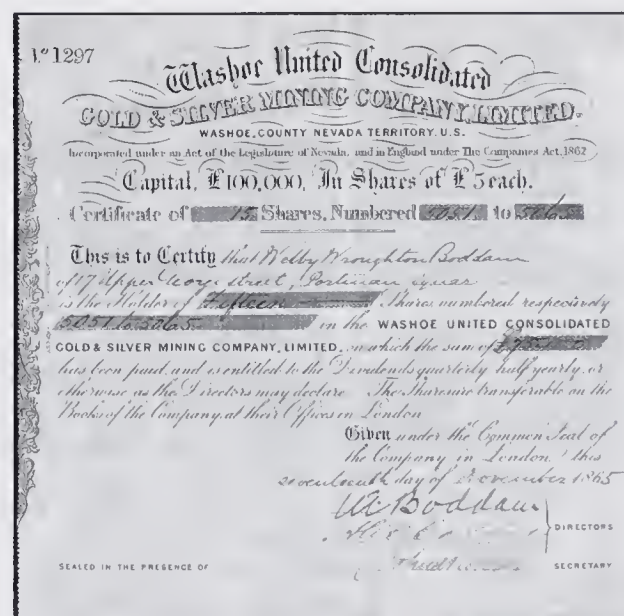 No 1297
Washoe United Consolidated
GOLD & SILVER MINING COMPANY, LIMITED.
WASHOE, COUNTY NEVADA TERRITORY, U.S.
Incorporated under an Act of the Legislature of Nevada, and in England under The Companies Act, 1862
Capital, £100,000, In Shares of £5 each.
Certificate of 15 Shares, Numbered 5051 to 5065
This is to Certify that Welby Wroughton Boddam
of 17 Upper George street, Portman Squar
is the Holder of Fifteen Shares numbered respectively
5051 to 5065 in the WASHOE UNITED CONSOLIDATED
GOLD & SILVER MINING COMPANY, LIMITED, on which the sum of
has been paid, and is entitled to the Dividends quarterly, half yearly, or
otherwise as the Directors may declare. The Shares are transferable on the
Books of the Company, at their Offices in London
Given under the Common Seal of
the Company in London, this
seventeenth day of November 1865
Boddam
DIRECTORS
SEALED IN THE PRESENCE OF SECRETARY